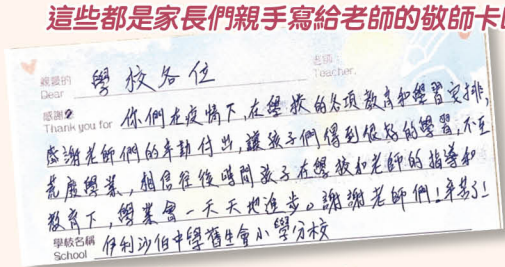 這些都是家長們親手寫給老師的敬師卡
親愛的 學校各位 老師
Dear Teacher,
感謝
Thank you for 你們在疫情下,在學校的各項教育和學習安排,
感謝老師們的辛勤付出,讓孩子們得到很好的學習,不至
荒廢學業,相信往後時間孩子在學校和老師的指導和
教育下,學業會一天天地進步。謝謝老師們!辛苦了!
學校名稱
School 伊利沙伯中學舊生會小學分校